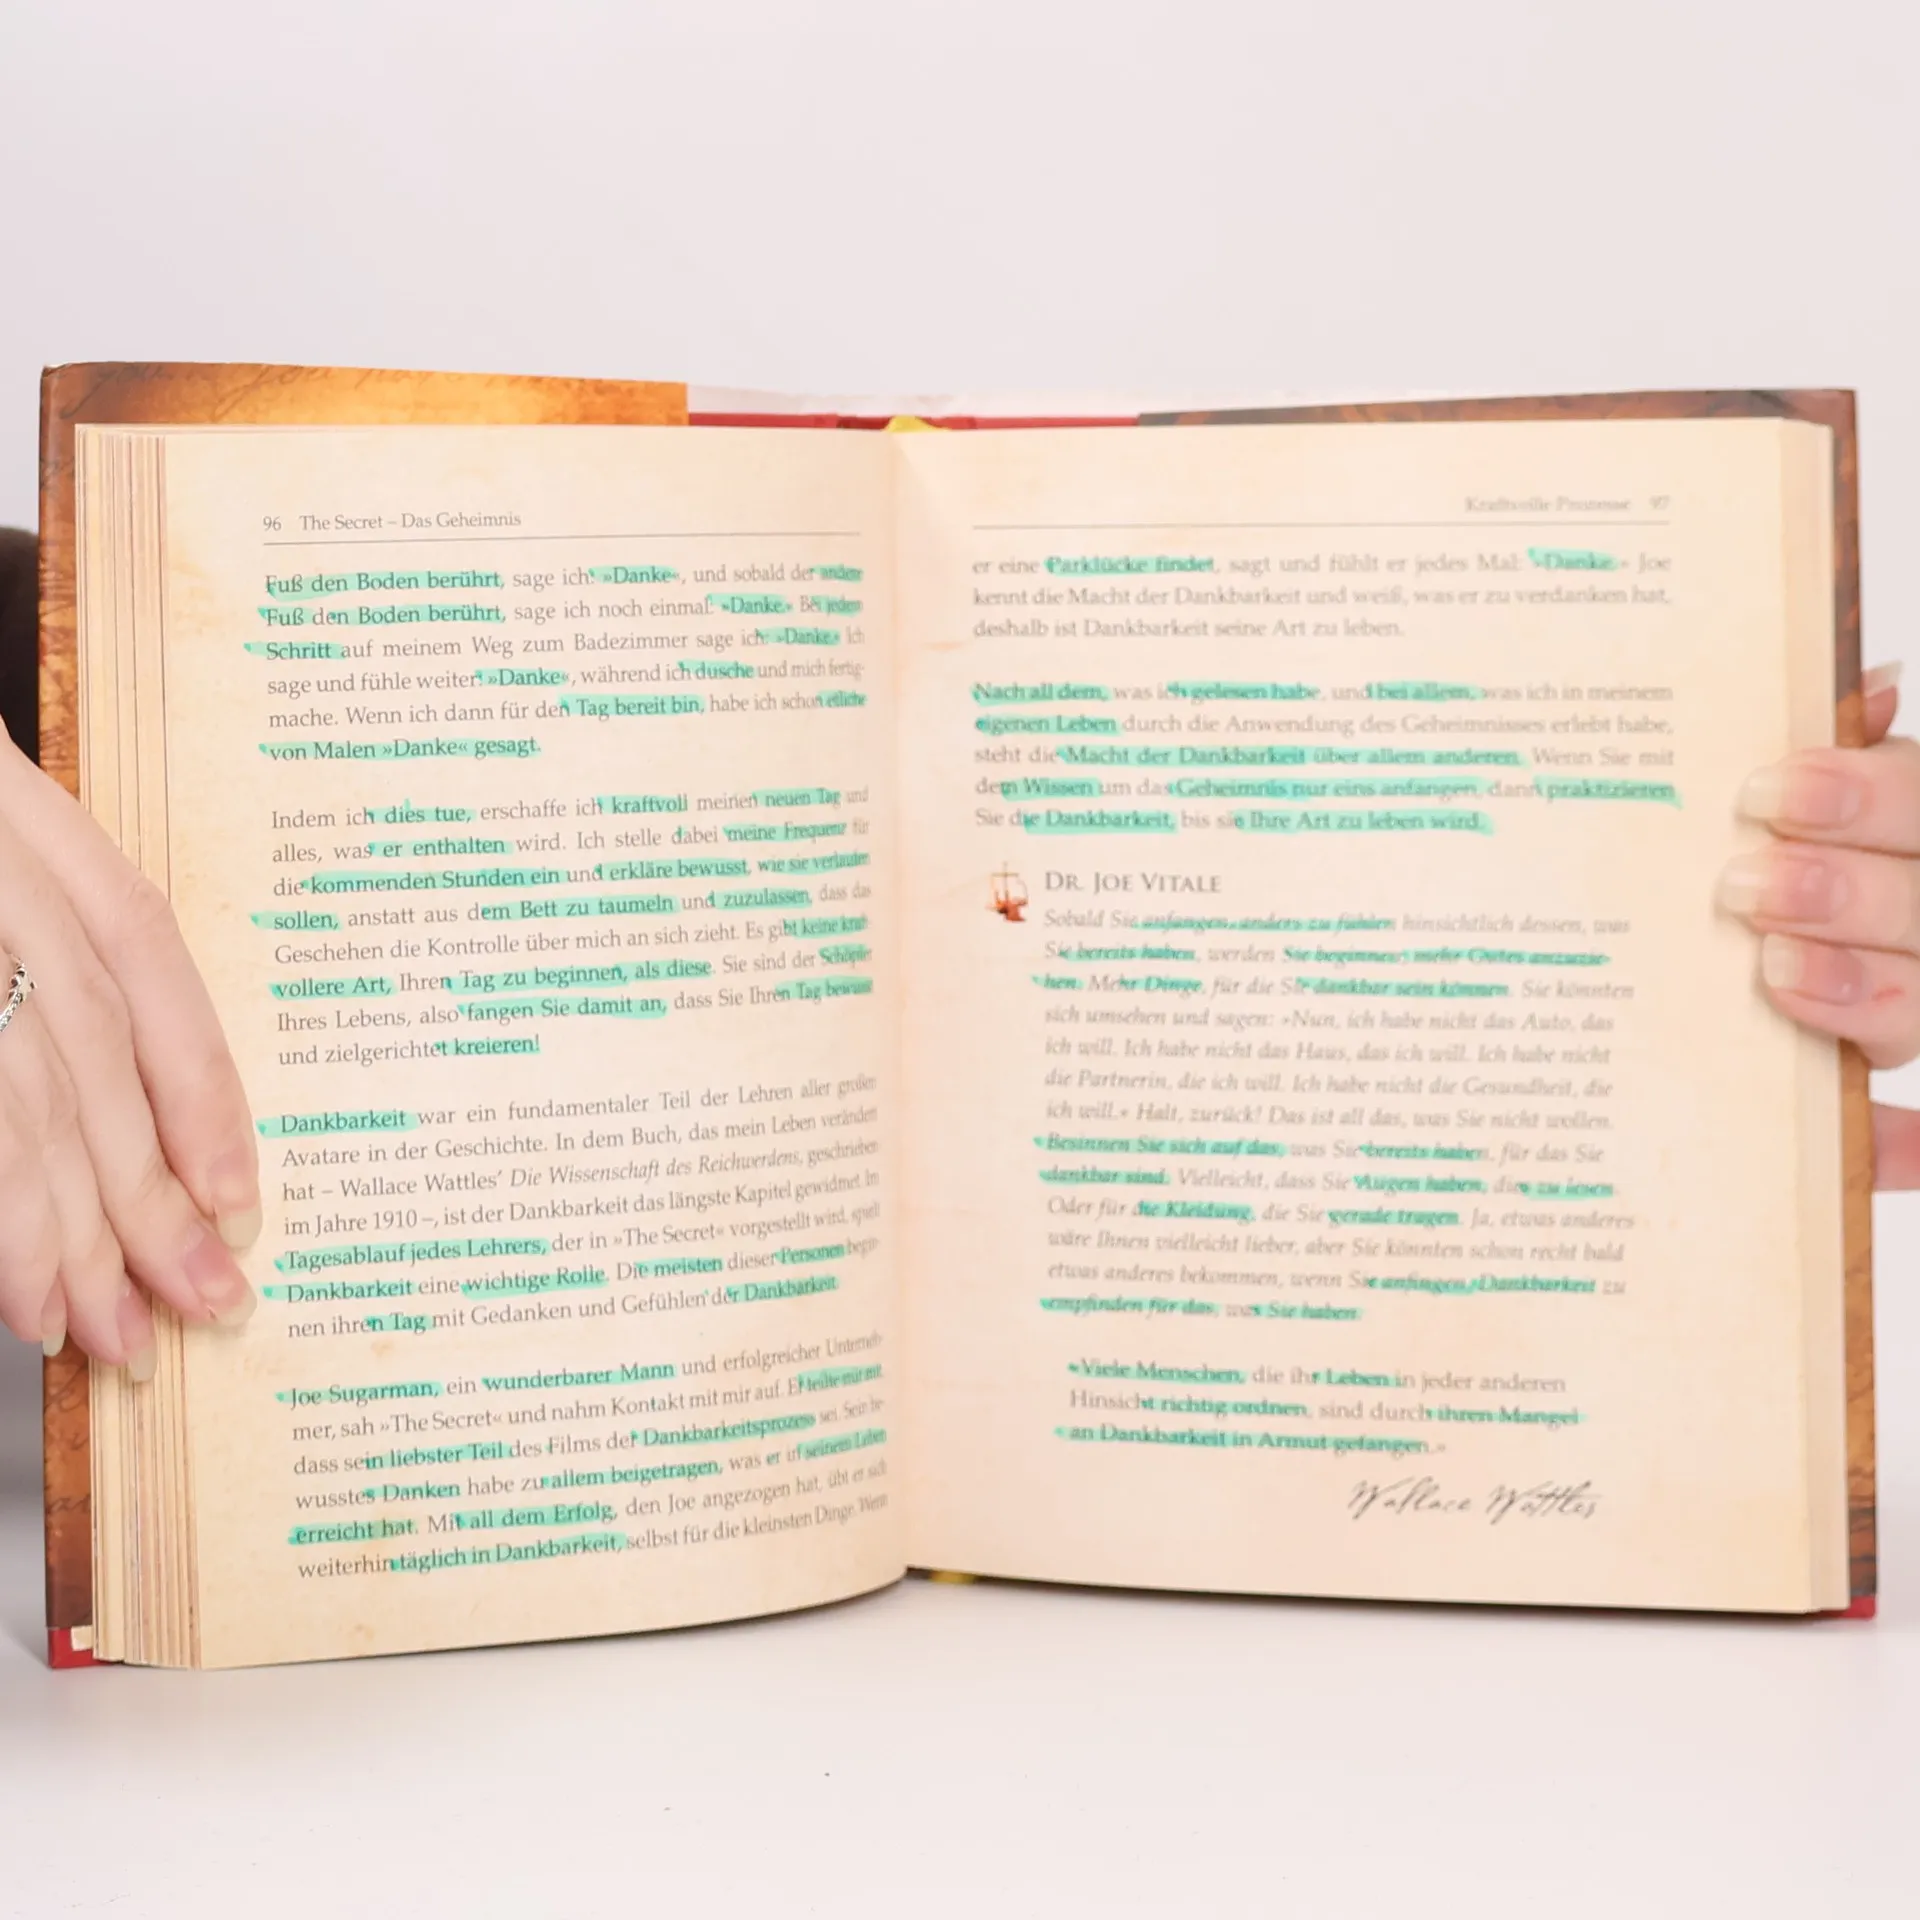 96 The Secret – Das Geheimnis
Fuß den Boden berührt, sage ich: »Danke«, und sobald der andere
Fuß den Boden berührt, sage ich noch einmal: »Danke.« Bei jedem
Schritt auf meinem Weg zum Badezimmer sage ich: »Danke.« Ich
sage und fühle weiter: »Danke«, während ich dusche und mich fertig-
mache. Wenn ich dann für den Tag bereit bin, habe ich schon etliche
von Malen »Danke« gesagt.
Indem ich dies tue, erschaffe ich kraftvoll meinen neuen Tag und
alles, was er enthalten wird. Ich stelle dabei meine Frequenz für
die kommenden Stunden ein und erkläre bewusst, wie sie verlaufen
sollen, anstatt aus dem Bett zu taumeln und zuzulassen, dass das
Geschehen die Kontrolle über mich an sich zieht. Es gibt keine kraft-
vollere Art, Ihren Tag zu beginnen, als diese. Sie sind der Schöpfer
Ihres Lebens, also fangen Sie damit an, dass Sie Ihren Tag bewusst
und zielgerichtet kreieren!
Dankbarkeit war ein fundamentaler Teil der Lehren aller großen
Avatare in der Geschichte. In dem Buch, das mein Leben verändert
hat – Wallace Wattles' Die Wissenschaft des Reichwerdens, geschrieben
im Jahre 1910 –, ist der Dankbarkeit das längste Kapitel gewidmet. Im
Tagesablauf jedes Lehrers, der in »The Secret« vorgestellt wird, spielt
Dankbarkeit eine wichtige Rolle. Die meisten dieser Personen begin-
nen ihren Tag mit Gedanken und Gefühlen der Dankbarkeit.
Joe Sugarman, ein wunderbarer Mann und erfolgreicher Unterneh-
mer, sah »The Secret« und nahm Kontakt mit mir auf. Er teilte mir mit,
dass sein liebster Teil des Films der Dankbarkeitsprozess sei. Sein be-
wusstes Danken habe zu allem beigetragen, was er in seinem Leben
erreicht hat. Mit all dem Erfolg, den Joe angezogen hat, übt er sich
weiterhin täglich in Dankbarkeit, selbst für die kleinsten Dinge. Wenn
Kraftvolle Prozesse 97
er eine Parklücke findet, sagt und fühlt er jedes Mal: »Danke.« Joe
kennt die Macht der Dankbarkeit und weiß, was er zu verdanken hat,
deshalb ist Dankbarkeit seine Art zu leben.
Nach all dem, was ich gelesen habe, und bei allem, was ich in meinem
eigenen Leben durch die Anwendung des Geheimnisses erlebt habe,
steht die Macht der Dankbarkeit über allem anderen. Wenn Sie mit
dem Wissen um das Geheimnis nur eins anfangen, dann praktizieren
Sie die Dankbarkeit, bis sie Ihre Art zu leben wird.
DR. JOE VITALE
Sobald Sie anfangen, anders zu fühlen hinsichtlich dessen, was
Sie bereits haben, werden Sie beginnen, mehr Gutes anzuzie-
hen. Mehr Dinge, für die Sie dankbar sein können. Sie könnten
sich umsehen und sagen: »Nun, ich habe nicht das Auto, das
ich will. Ich habe nicht das Haus, das ich will. Ich habe nicht
die Partnerin, die ich will. Ich habe nicht die Gesundheit, die
ich will.« Halt, zurück! Das ist all das, was Sie nicht wollen.
Besinnen Sie sich auf das, was Sie bereits haben, für das Sie
dankbar sind. Vielleicht, dass Sie Augen haben, dies zu lesen.
Oder für die Kleidung, die Sie gerade tragen. Ja, etwas anderes
wäre Ihnen vielleicht lieber, aber Sie könnten schon recht bald
etwas anderes bekommen, wenn Sie anfingen, Dankbarkeit zu
empfinden für das, was Sie haben.
»Viele Menschen, die ihr Leben in jeder anderen
Hinsicht richtig ordnen, sind durch ihren Mangel
an Dankbarkeit in Armut gefangen.«
Wallace Wattles